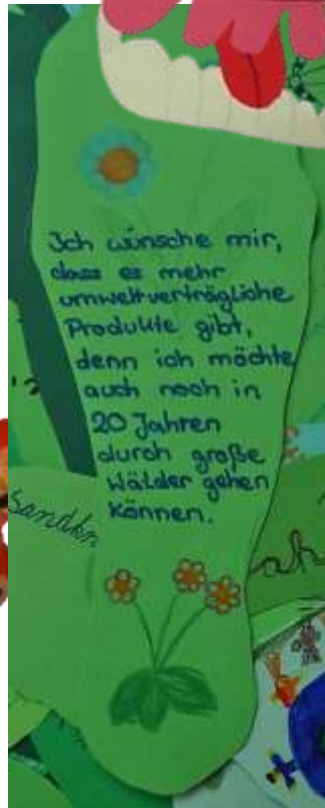 Ich wünsche mir,
dass es mehr
umweltverträgliche
Produkte gibt,
denn ich möchte
auch noch in
20 Jahren
durch große
Wälder gehen
können.